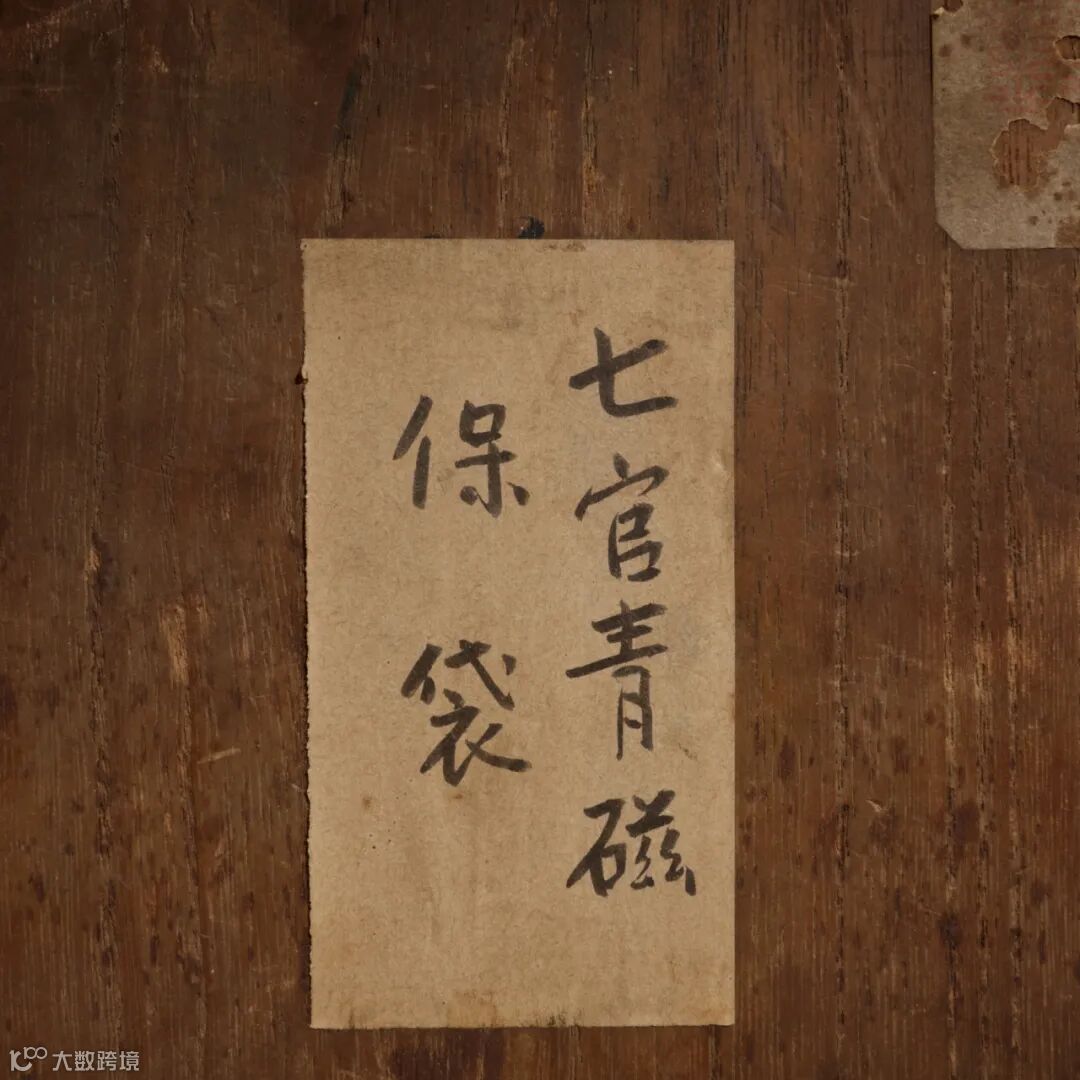 七官青磁
保袋
大数跨境